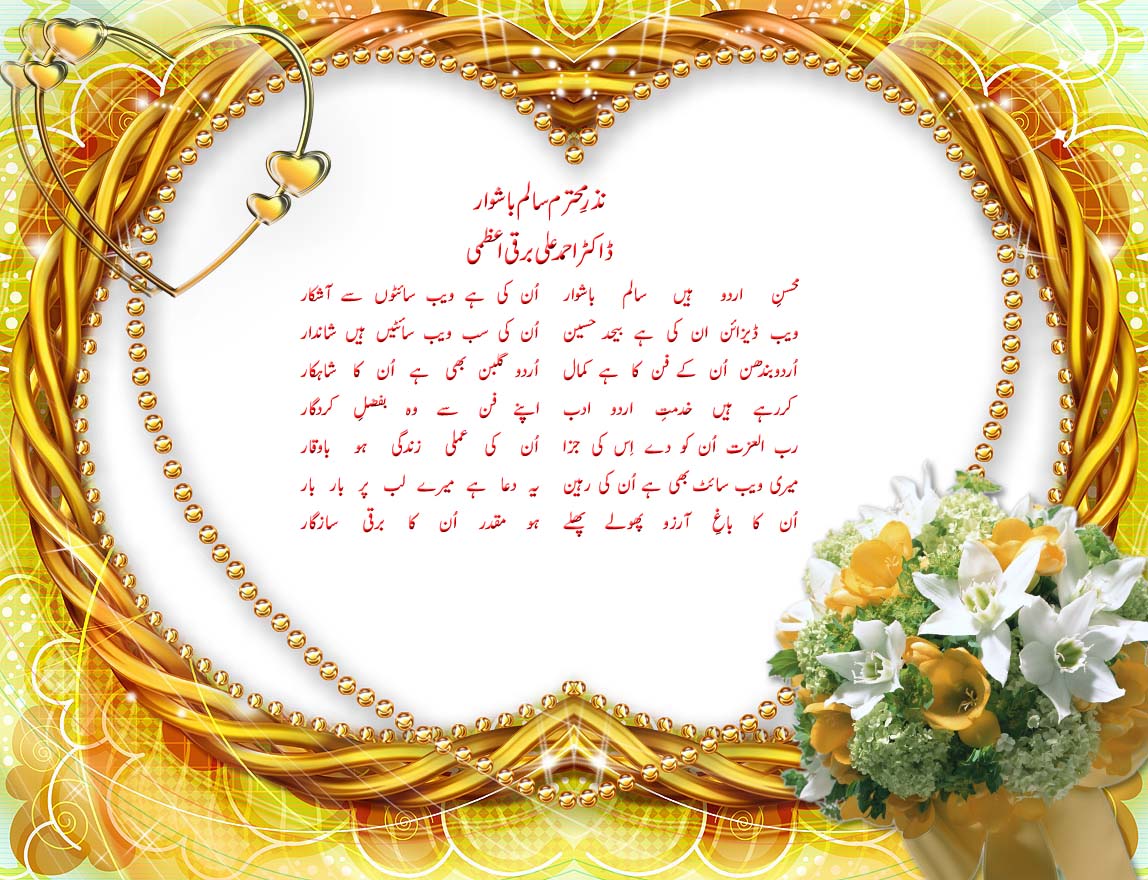 نذرِ محترم سالم باشوار
ڈاکٹر احمد علی برقی اعظمی
محسنِ اردو ہیں سالم باشوار اُن کی ہے ویب سائٹوں سے آشکار
ویب ڈیزائن ان کی ہے بیحد حسین اُن کی سب ویب سائٹیں ہیں شاندار
اُردوبندھن اُن کے فن کا ہے کمال اُردو گلبن بھی ہے اُن کا شاہکار
کررہے ہیں خدمتِ اردو ادب اپنے فن سے وہ بفضلِ کردگار
رب العزت اُن کو دے اِس کی جزا اُن کی عملی زندگی ہو باوقار
میری ویب سائٹ بھی ہے اُن کی رہین یہ دعا ہے میرے لب پر بار بار
اُن کا باغِ آرزو پھولے پھلے ہو مقدر اُن کا برقی سازگار